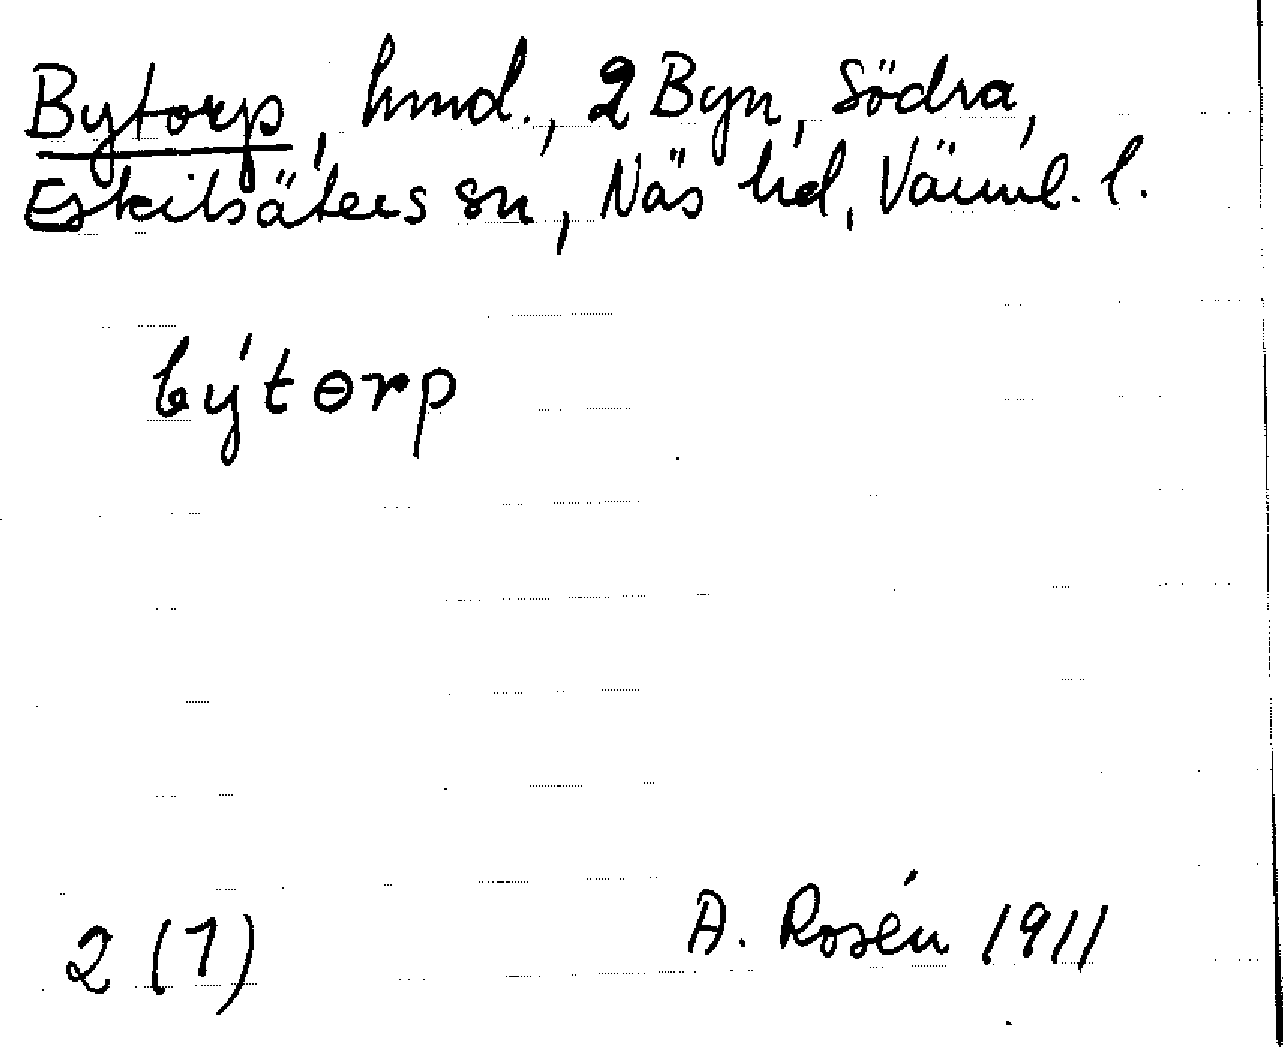 Bytorp, hmd., 2 Byn, Södra,
Eskilsäters sn, Näs hd, Värml. l.
býtɵrp
2 (1)
A. Rosén 1911